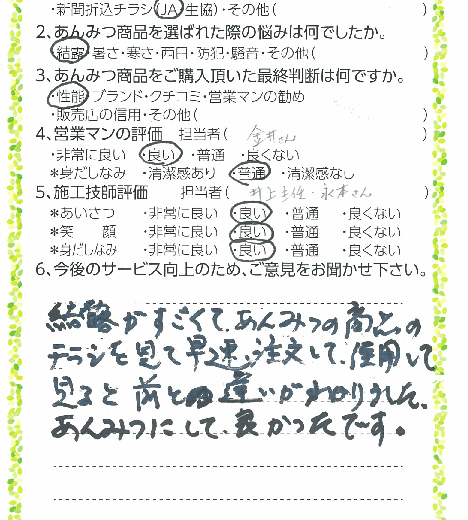 ・新聞折込チラシ・JA・生協)・その他(　　　)
2,あんみつ商品を選ばれた際の悩みは何でしたか。
・結露・暑さ・寒さ・西日・防犯・騒音・その他(　　　)
3,あんみつ商品をご購入頂いた最終判断は何ですか。
・性能・ブランド・クチコミ・営業マンの勧め
・販売店の信用・その他(　　　)
4,営業マンの評価　担当者(　金井さん　)
・非常に良い　・良い　・普通　・良くない
＊身だしなみ　・清潔感あり　・普通　・清潔感なし
5,施工技師評価　担当者(　井上主任・永本さん　)
＊あいさつ　・非常に良い　・良い　・普通　・良くない
＊笑　顔　・非常に良い　・良い　・普通　・良くない
＊身だしなみ　・非常に良い　・良い　・普通　・良くない
6,今後のサービス向上のため、ご意見をお聞かせ下さい。
結露がすごくて、あんみつの商品の
チラシを見て早速、注文して、使用して
見ると前との違いがわかりました、
あんみつにして、良かったです。